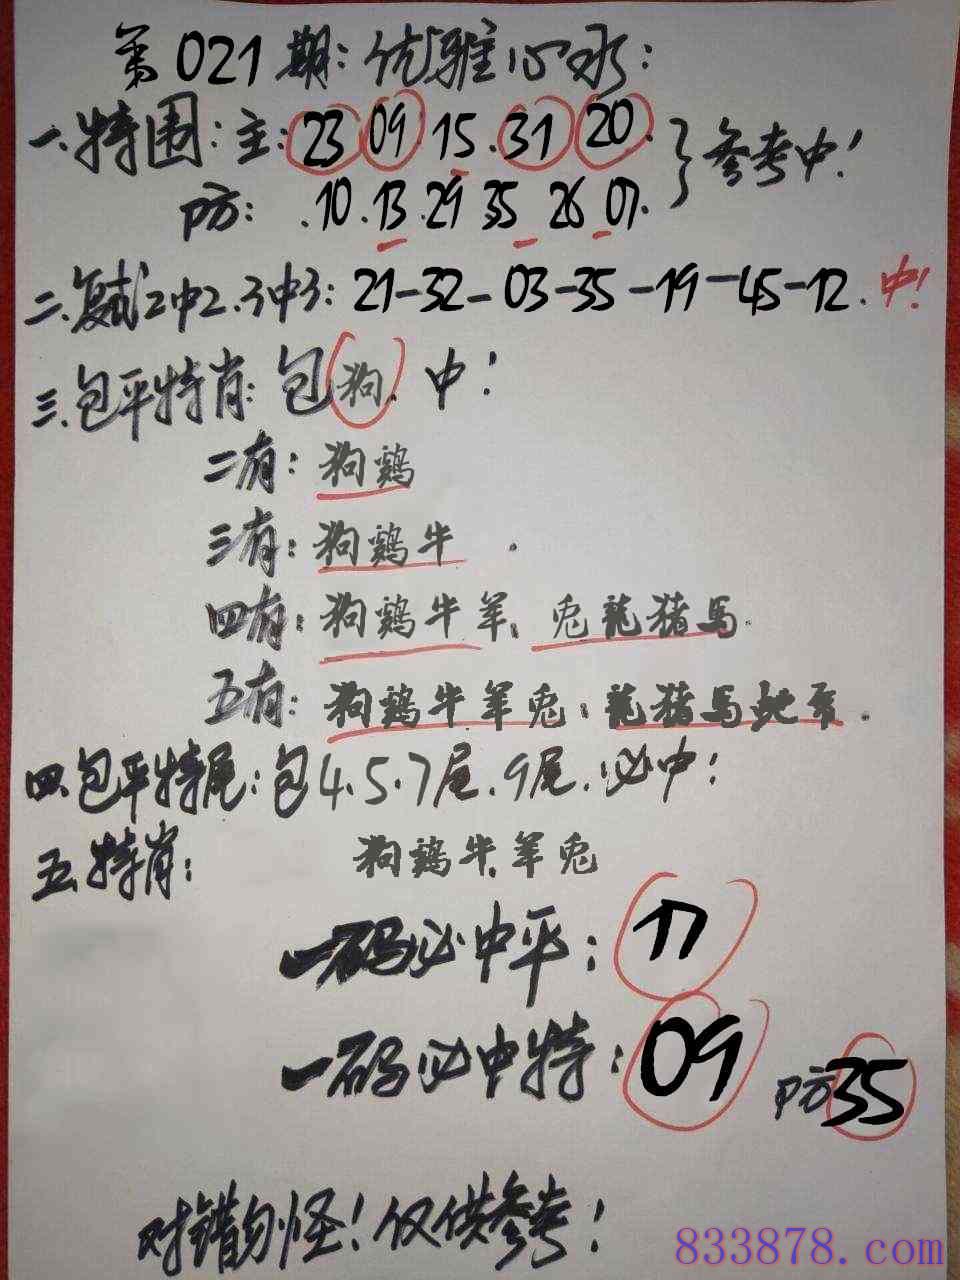 第021期:优雅心水:
一.特围:主:23 09.15.31 20.}参考中!
防:.10.13.29 35 26 07.
二.复试2中2.3中3:21-32-03-35-19-45-12.中!
三.包平特肖:包狗.中!
二有:狗鷄
三有:狗鷄牛.
四有:狗鷄牛羊.兔龍猪馬.
五有:狗鷄牛羊兔:龍猪馬蛇.
四.包平特尾:包4.5.7尾.9尾.必中!
五.特肖:狗鷄牛.羊兔
一码必中平:17
一码必中特:09 防35
对错勿怪!仅供参考!
833878.com